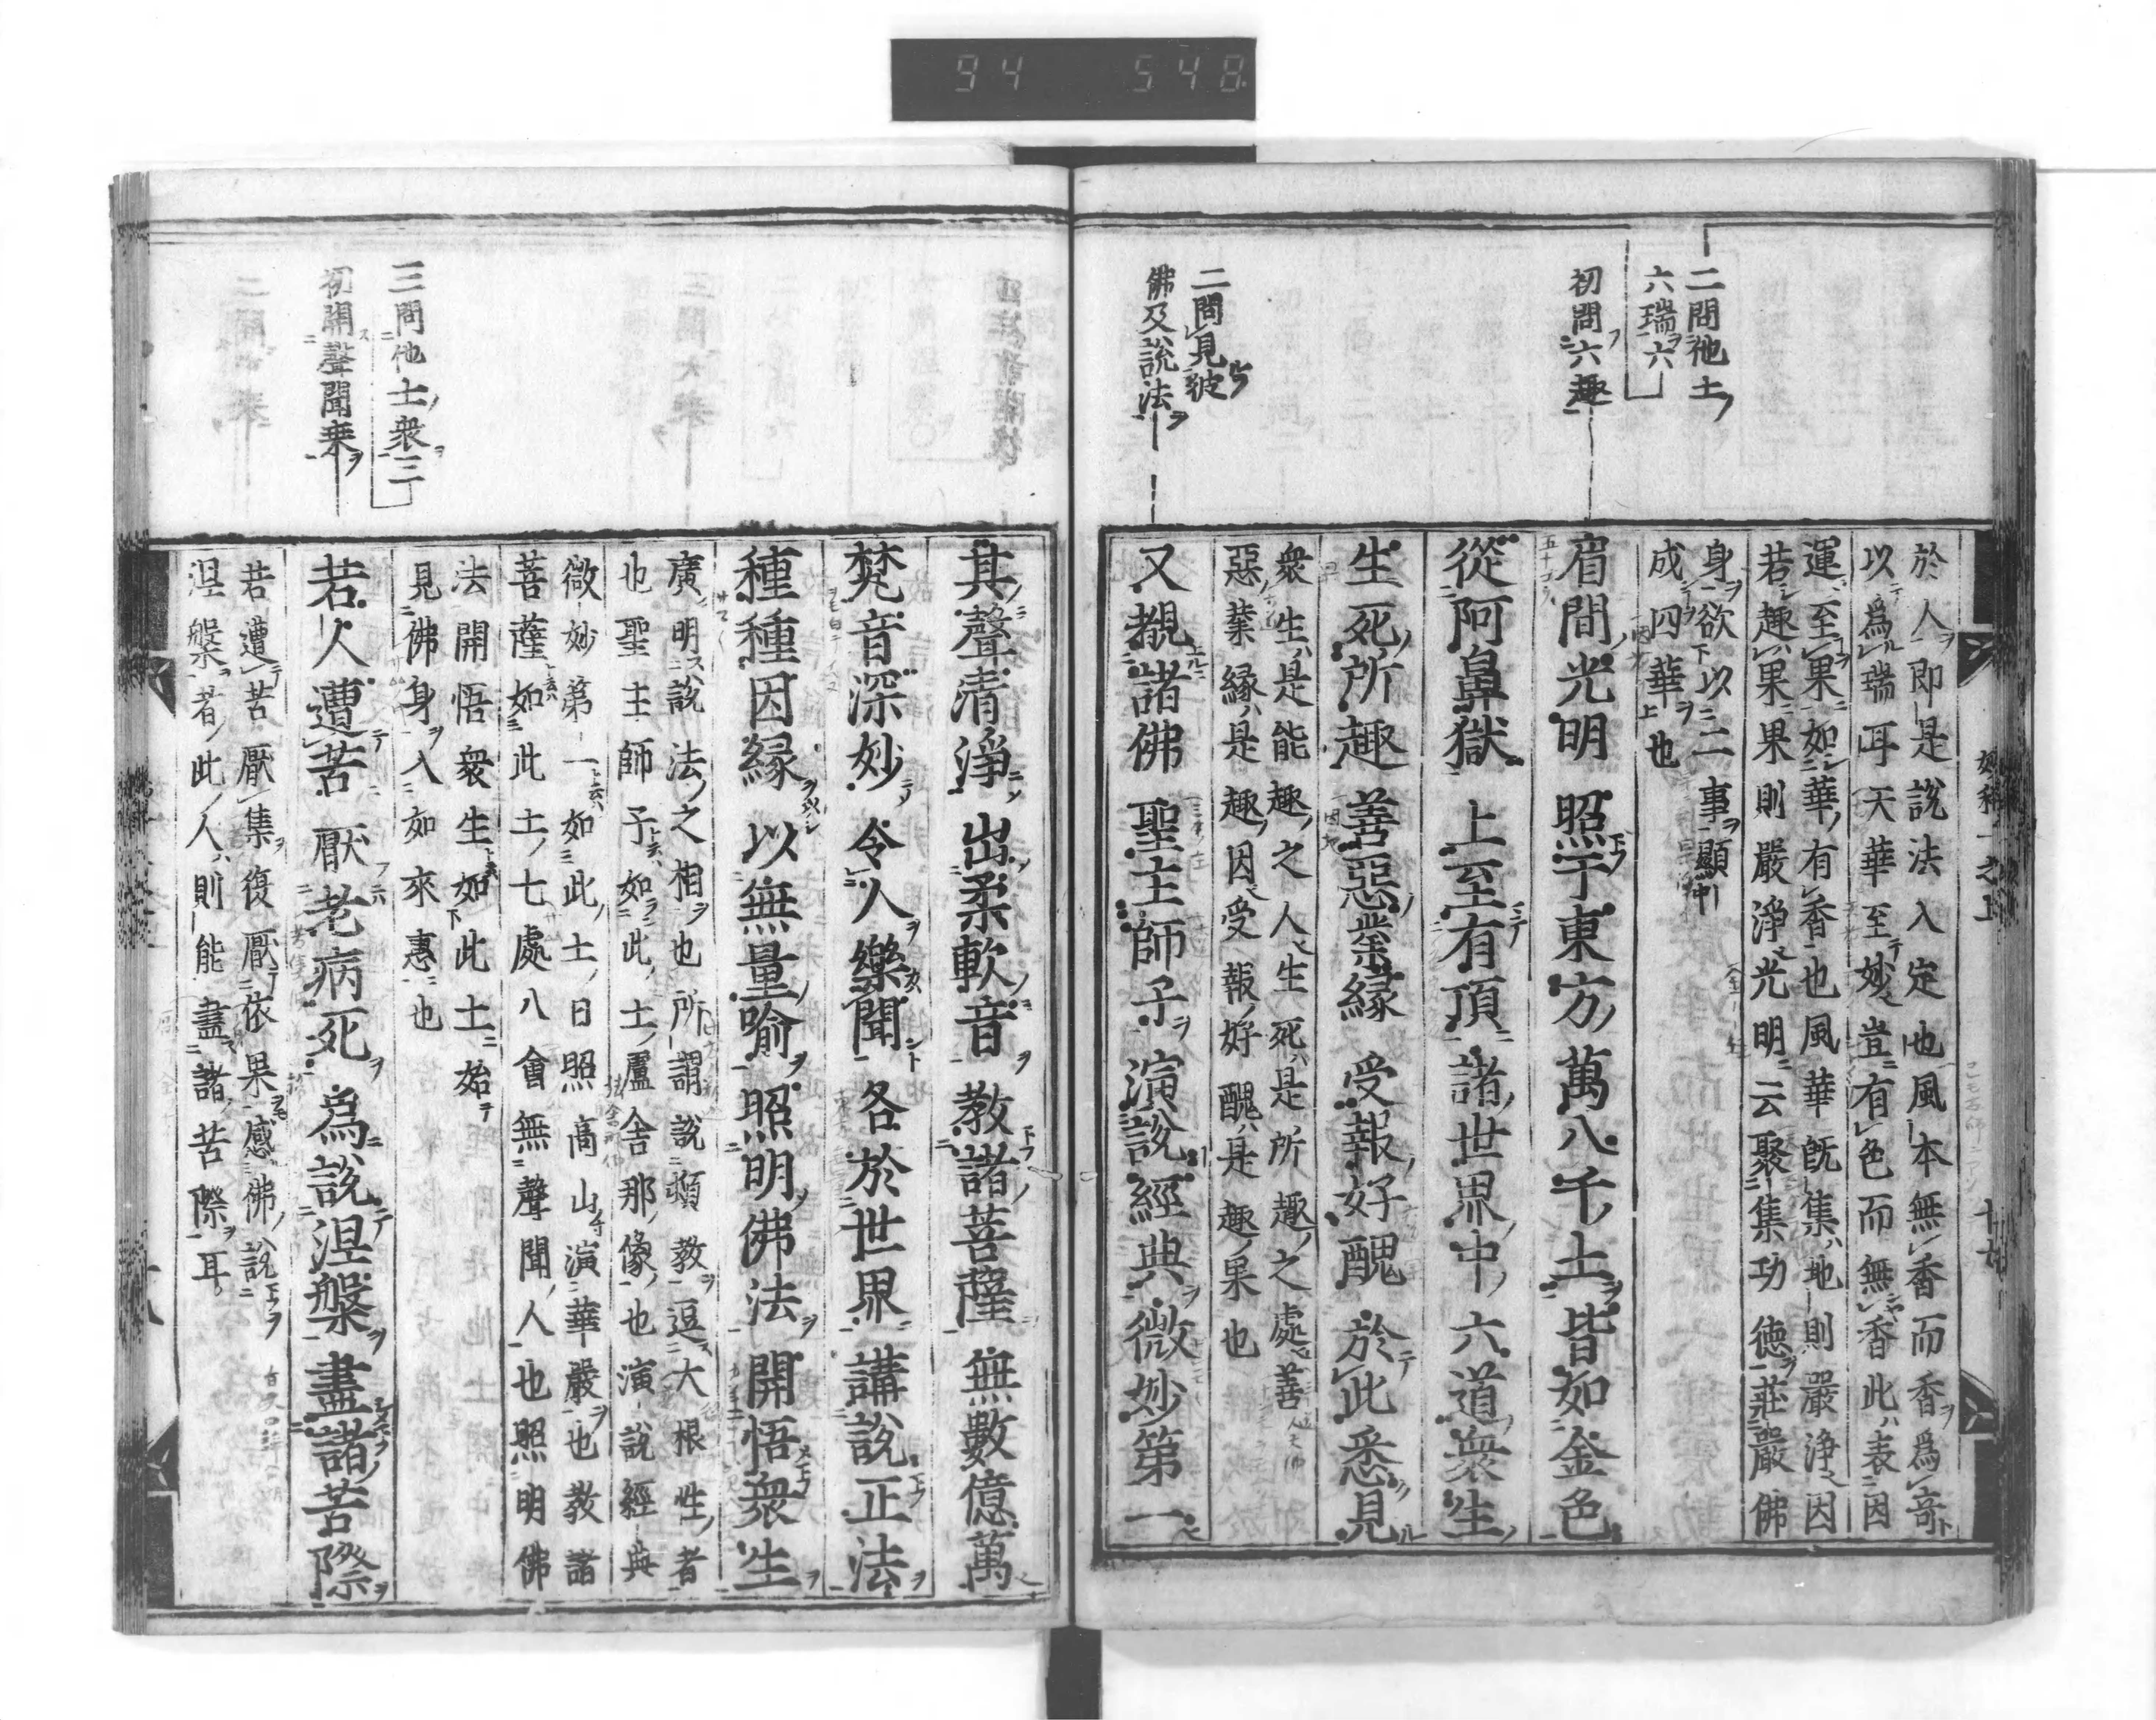 94 548
二問他土
六瑞六
初問六趣
二問見彼
佛及說法
於人即是說法入定也風本無香而香爲奇
以爲瑞耳天華至妙豈有色而無香此表因
運至果如華有香也風華旣集地則嚴淨因
若趣果果則嚴淨光明云聚集功德莊嚴佛
身欲以二事顯
成四華也
眉間光明 照于東方 萬八千土 皆如金色
從阿鼻獄 上至有頂 諸世界中 六道衆生
生死所趣 善惡業緣 受報好醜 於此悉見
衆生是能趣之人生死是所趣之處善
惡業緣是趣因受報好醜是趣果也
又覩諸佛 聖主師子 演說經典 微妙第一
三問他土衆三
初開聲聞乘
其聲清淨 出柔軟音 教諸菩薩 無數億萬
梵音深妙 令人樂聞 各於世界 講說正法
種種因緣 以無量喻 照明佛法 開悟衆生
廣明說法之相也所謂說頓教逗大根性者
也聖主師子如此土盧舍那像也演說經典
微妙第一如此土日照高山演華嚴也教諸
菩薩如此土七處八會無聲聞人也照明佛
法開悟衆生如此土始
見佛身入如來惠也
若人遭苦 厭老病死 爲說涅槃 盡諸苦際
若遭苦厭集復厭依果感佛說
涅槃者此人則能盡諸苦際耳